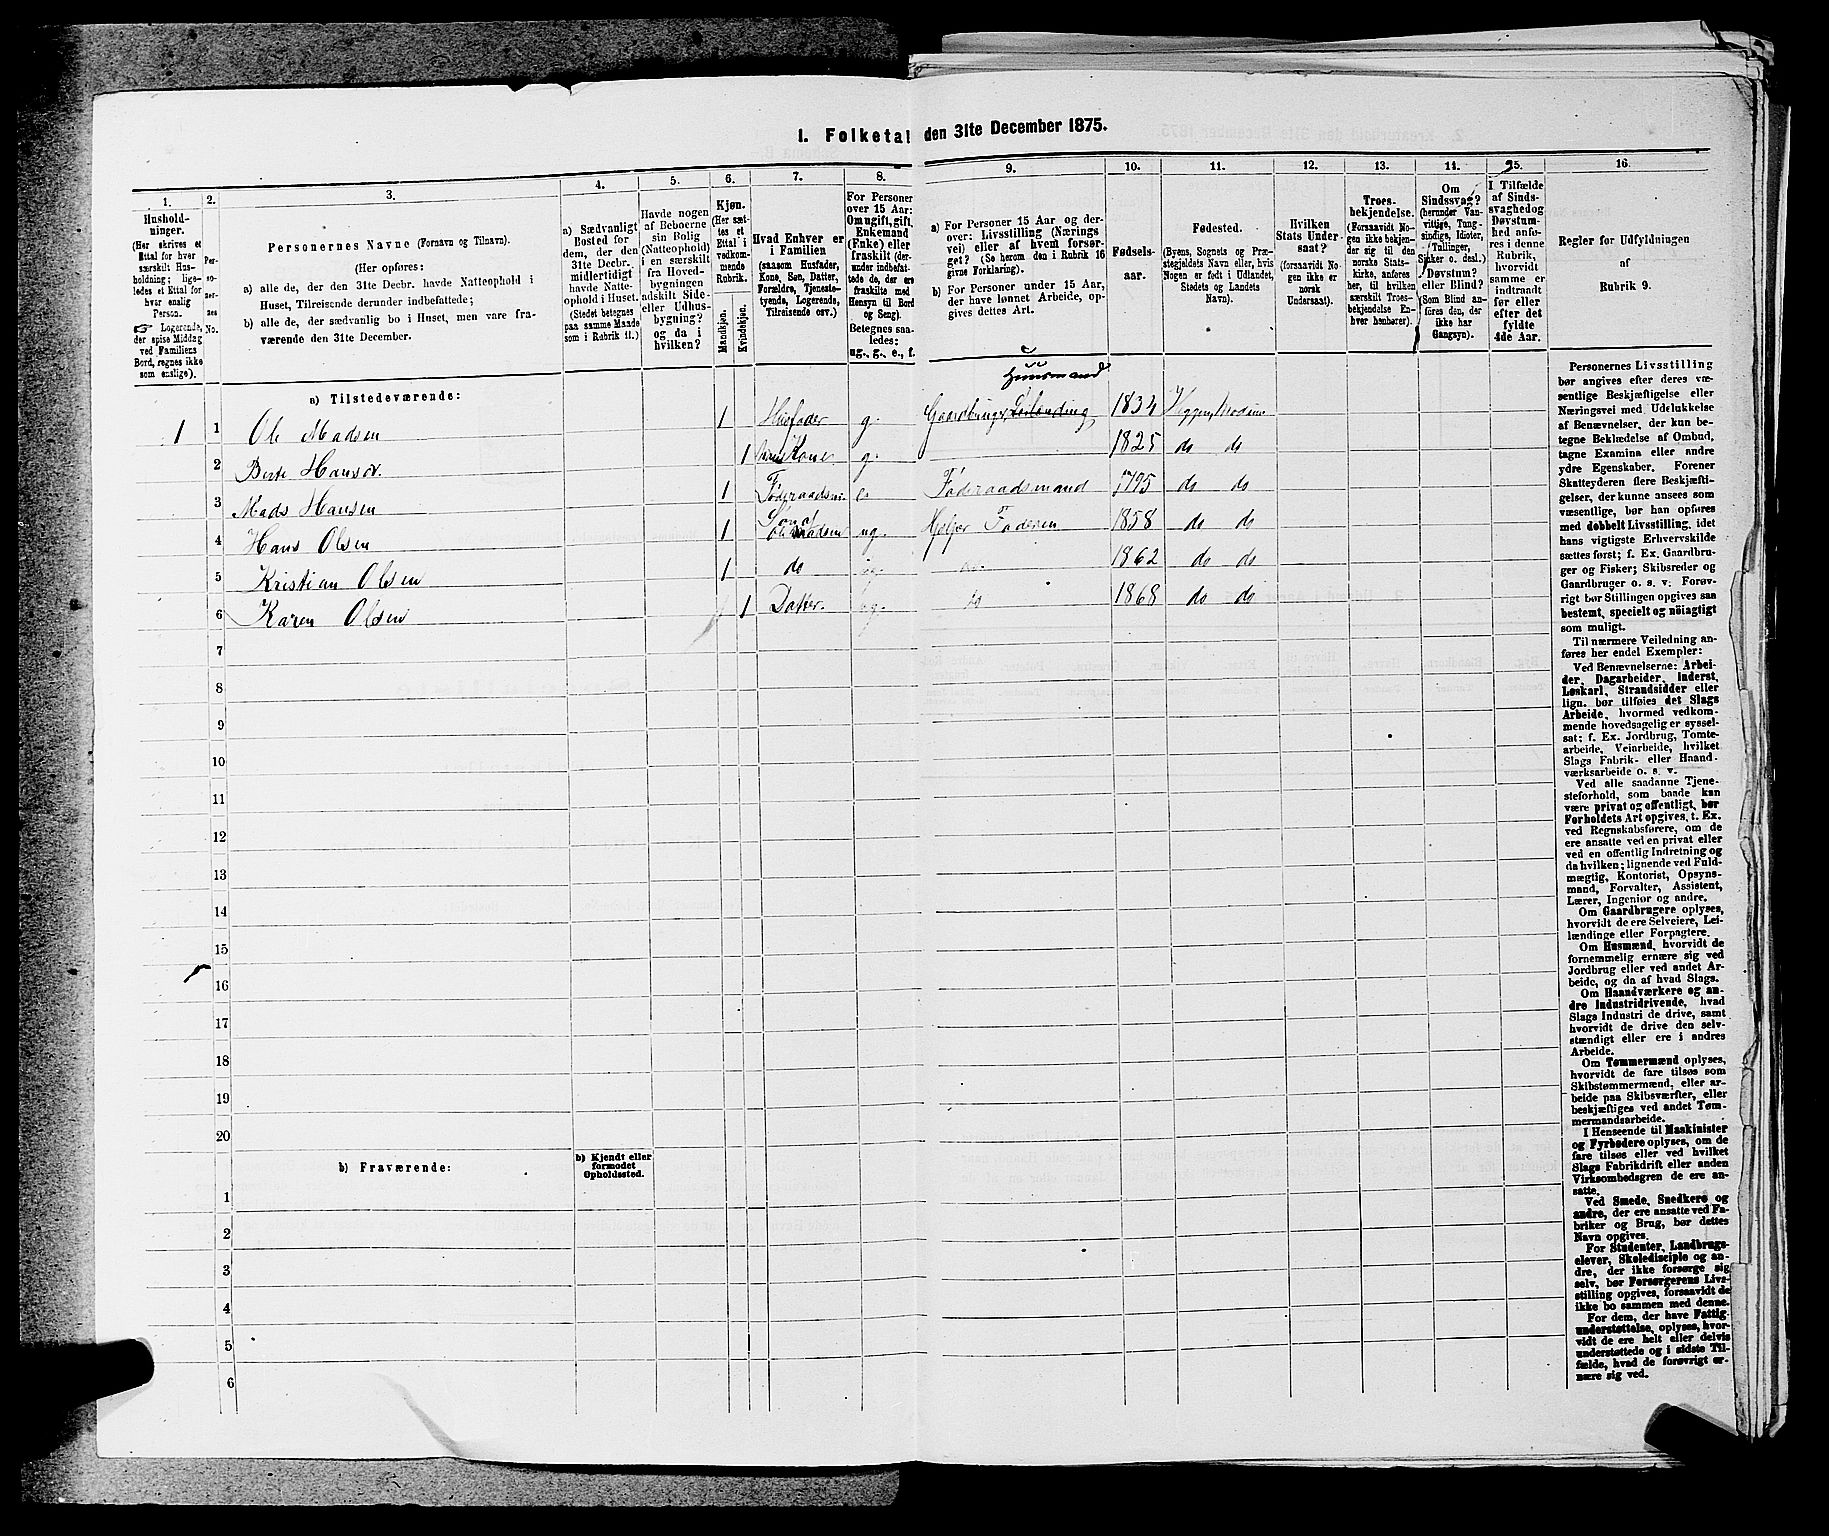 1. Folketal den 31te December 1875.
1.
2.
3.
4.
5.
6.
7.
8.
9.
10.
11.
12.
13.
14.
15.
16.
Hushold-
ninger.
(Her skrives et
Ettal for hver
særskilt Hus-
holdning; lige-
ledes et Ettal for
hver enslig
Person.
☞ Logerende,
der spise Middag
ved Familiens
Bord, regnes ikke
som enslige).
Per-
so-
ner-
nes
No.
Personernes Navne (Fornavn og Tilnavn).
(Her opføres:
a) alle de, der den 31te Decbr. havde Natteophold i
Huset, Tilreisende derunder indbefattede;
b) alle de, der sædvanlig bo i Huset, men vare fra-
værende den 31te December.
a) Sædvanligt
Bosted for
dem, der den
31te Decbr.
midlertidigt
havde Natte-
ophold i Huset.
(Stedet betegnes
paa samme Maade
som i Rubrik 11.)
Havde nogen
af Beboerne
sin Bolig
(Natteophold)
i en særskilt
fra Hoved-
bygningen
adskilt Side-
eller Udhus-
bygning?
og da i
hvilken?
Kjøn.
(Her sæt-
tes et
Ettal i
vedkom-
mende
Rubrik.
Mandkjøn.
Kvindekjøn.
Hvad Enhver er
i Familien
(saasom Husfader,
Kone, Søn, Datter,
Forældre, Tjeneste-
tyende, Logerende,
Tilreisende osv.)
For Personer
over 15 Aar:
Om ugift, gift,
Enkemand
(Enke) eller
fraskilt (der-
under indbefat-
tede de, der ere
fraskilte med
Hensyn til Bord
og Seng).
Betegnes saa-
ledes:
ug., g., e., f.
a) For Personer 15 Aar og der-
over: Livsstilling (Nærings
vei) eller af hvem forsør-
get? (Se herom den i Rubrik 16
givne Forklaring).
b) For Personer under 15 Aar,
der have lønnet Arbeide, op-
gives dettes Art.
Fødsels-
aar.
Fødested.
(Byens, Sognets og Præ-
stegjeldets Navn eller, hvis
Nogen er født i Udlandet,
Stedets og Landets
Navn).
Hvilken
Stats Under-
saat?
(forsaavidt No-
gen ikke er
norsk
Undersaat).
Troes-
bekjendelse.
(Forsaavidt No-
gen ikke bekjen-
der sig til den
norske Stats-
kirke, anføres
her, til hvilken
særskilt Troes-
bekjendelse En-
hver henhører).
Om
Sindssvag?
(herunder Van-
vittige, Tung-
sindige, Idioter,
Tullinger,
Sinker o. desl.)
Døvstum?
eller Blind?
(Som Blind an-
føres den, der
ikke har
Gangsyn).
I Tilfælde
af Sinds-
svaghed og
Døvstum-
hed anfø-
res i denne
Rubrik,
hvorvidt
samme er
indtraadt
før eller
efter det
fyldte
4de Aar.
Regler for Udfyldningen
af
Rubrik 9.
a) Tilstedeværende:
Huusmand
1 1 Ole Madsen 1 Husfader g. Gaardbruger, 1834 Modum
2 Berte Hansd. 1 Kone g. 1825 do do
3 Mads Hansen 1 e. Føderaadsmand 1795 do do
4 Hans Olsen 1 ug. Hjelper Faderen 1858 do do
5 Kristian Olsen 1 do ug. 1862 do do
6 Karen Olsen 1 Datter. ug. do 1868 do do
7
8
9
10
11
12
13
14
15
16
17
18
19
20
b) Fraværende:
b) Kjendt eller
formodet
Opholdssted.
1
2
3
4
5
6
Personernes Livsstilling
bør angives efter deres væ-
sentlige Beskjæftigelse eller
Næringsvei med Udelukkelse
af Benævnelser, der kun be-
tegne Beklædelse af Ombud,
tagne Examina eller andre
ydre Egenskaber. Forener
Skatteyderen flere Beskjæfti-
gelser, der kunne ansees som
væsentlige, bør han opføres
med dobbelt Livsstilling, idet
hans vigtigste Erhvervskilde
sættes først; f. Ex. Gaardbru-
ger og Fisker; Skibsreder og
Gaardbruger o. s. v. Forøv-
rigt bør Stillingen opgives saa
bestemt, specielt og nöiagtigt
som muligt.
Til nærmere Veiledning an-
føres her endel Exempler:
Ved Benævnelserne: Arbei-
der, Dagarbeider, Inderst,
Løskarl, Strandsidder eller
lign. bør tilføies det Slags
Arbeide, hvormed vedkom-
mende hovedsagelig er syssel-
sat; f. Ex. Jordbrug, Tomte-
arbeide, Veiarbeide, hvilket
Slags Fabrik- eller Haand-
værksarbeide o. s. v.
Ved alle saadanne Tjene-
steforhold, som baade kan
være privat og offentligt, bør
Forholdets Art opgives, t. Ex.
ved Regnskabsførere, om de
ere ansatte ved en privat eller
ved en offentlig Indretning og
da hvilken; lignende ved Fuld-
mægtig, Kontorist, Opsyns-
mand, Forvalter, Assistent,
Lærer, Ingeniør og andre.
Om Gaardbrugere oplyses,
hvorvidt de ere Selveiere, Lei-
lændinge eller Forpagtere.
Om Husmænd, hvorvidt de
fornemmelig ernære sig ved
Jordbrug eller ved andet Ar-
beide, og da af hvad Slags.
Om Haandværkere og an-
dre Industridrivende, hvad
Slags Industri de drive, samt
hvorvidt de drive den selv-
stændigt eller ere i andres
Arbeide.
Om Tømmermænd oplyses,
hvorvidt de fare tilsøs som
Skibstømmermænd, eller ar-
beide paa Skibsværfter, eller
beskjæftiges ved andet Tøm-
mermandsarbeide.
I Henseende til Maskinister
og Fyrbødere oplyses, om de
fare tilsøs eller ved hvilket
Slags Fabrikdrift eller anden
Virksomhedsgren de ere an-
satte.
Ved Smede, Snedkere og
andre, der ere ansatte ved Fa-
briker og Brug, bør dettes
Navn opgives.
For Studenter, Landbrugs-
elever, Skoledisciple og an-
dre, der ikke forsørge sig
selv, bør Forsørgerens Livs-
stilling opgives, forsaavidt de
ikke bo sammen med denne.
For dem, der have Fattig-
understøttelse, oplyses, hvor-
vidt de ere helt eller delvis
understøttede og i sidste Til-
fælde, hvad de forøvrigt er-
nære sig ved.